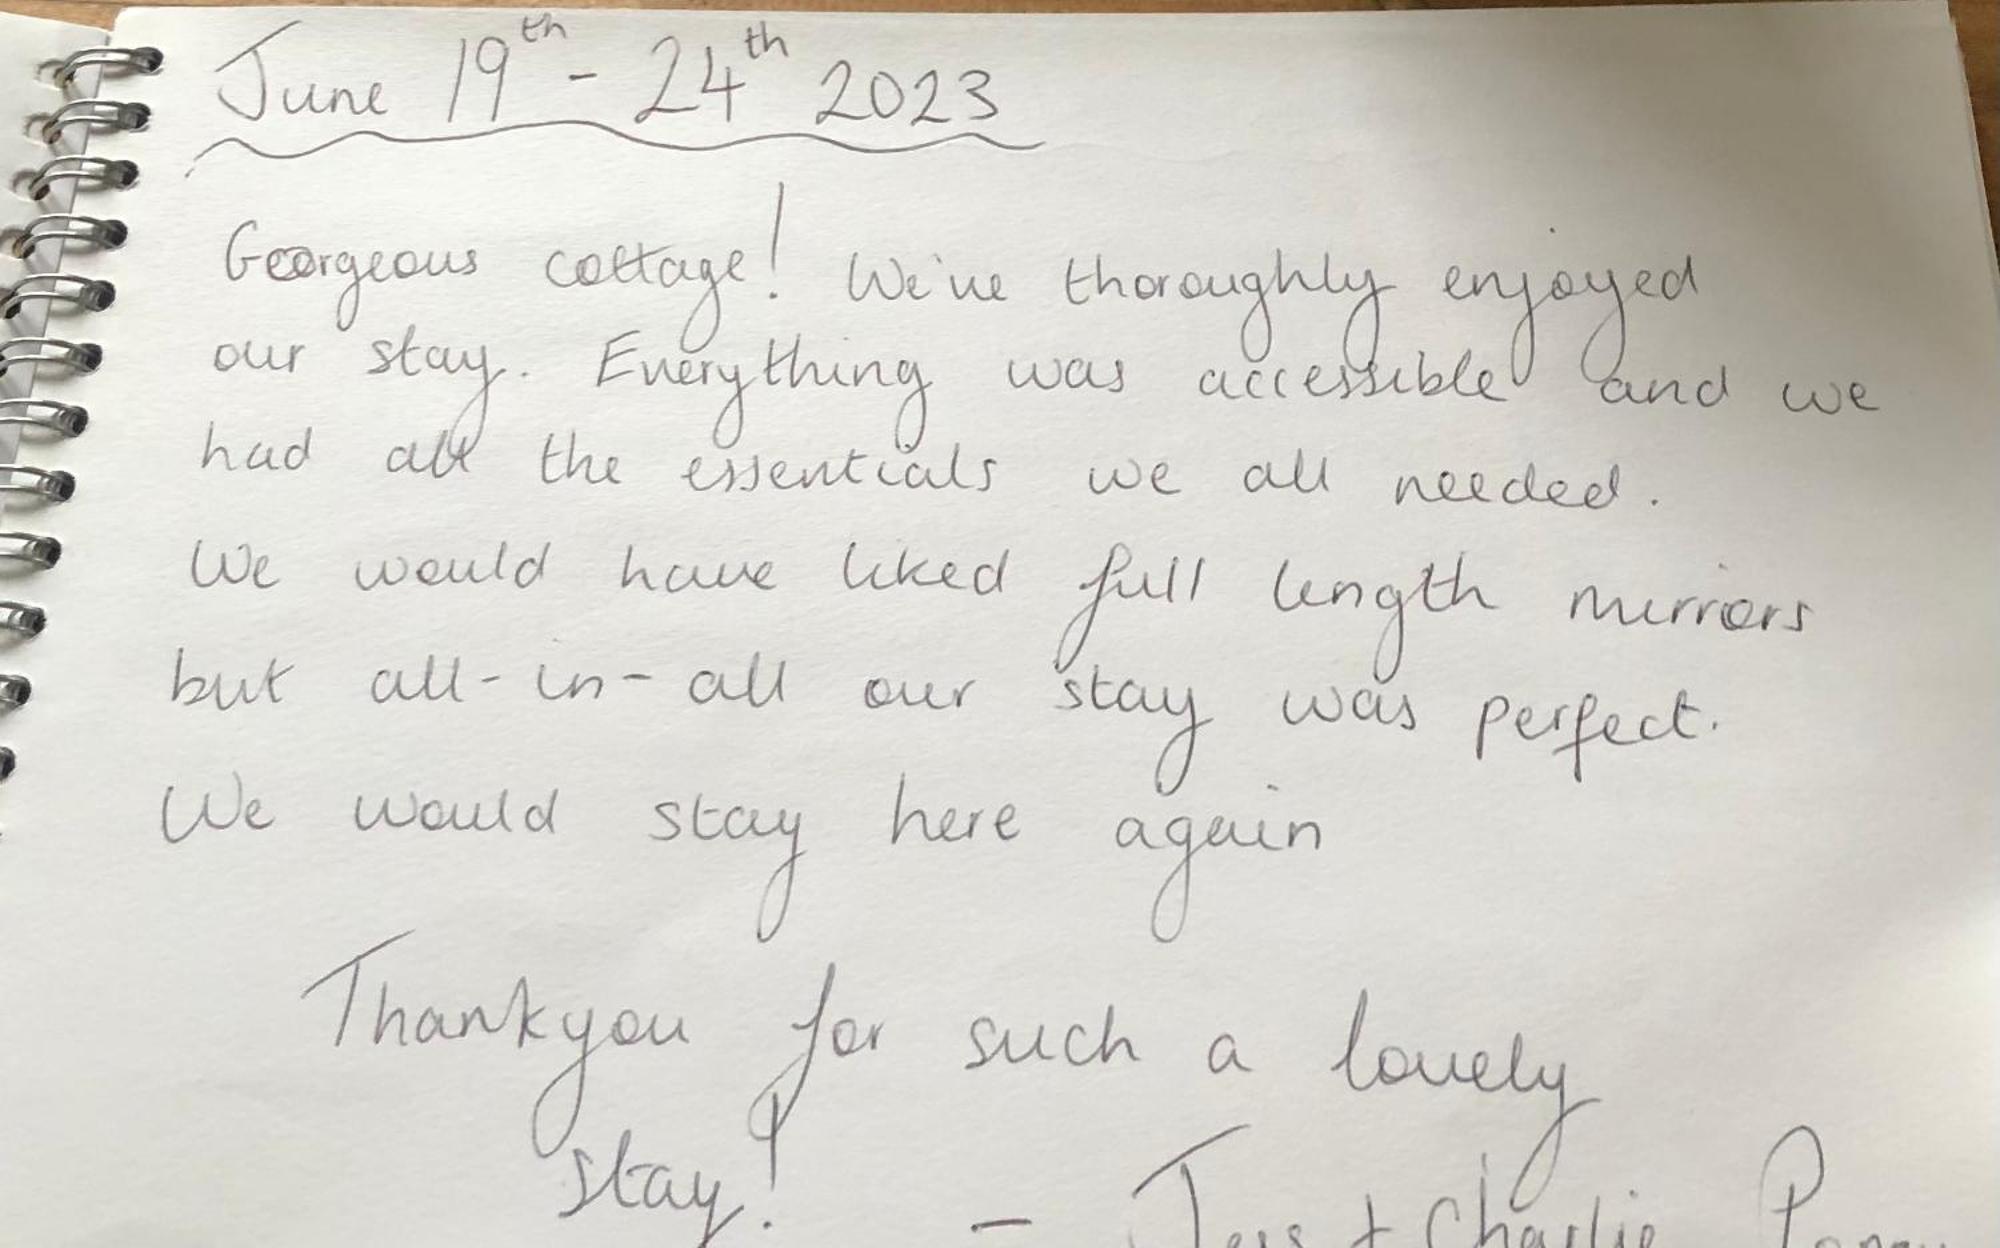 June 19th - 24th 2023
Georgeous cottage! We've thoroughly enjoyed
our stay. Everything was accessible and we
had all the essentials we all needed.
We would have liked full length mirrors
but all-in-all our stay was perfect.
We would stay here again
Thankyou for such a lovely
stay!
- Jess + Charlie